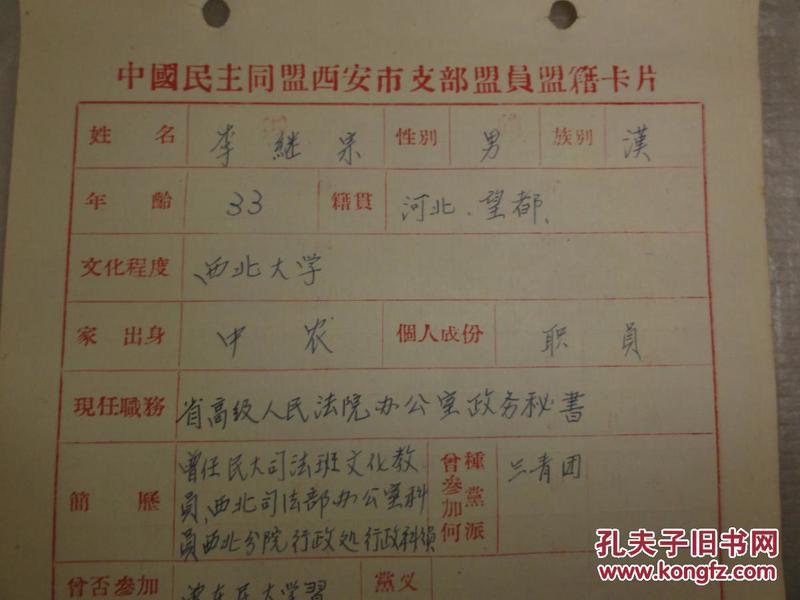 中國民主同盟西安市支部盟員盟籍卡片
姓名 李継宗 性別 男 族別 漢
年齡 33 籍貫 河北、望都、
文化程度 西北大学
家出身 中农 個人成份 职員
現任職務 省高级人民法院办公室政务秘書
簡歷 曾任民大司法班文化教
員、西北司法部办公室科
員西北分院行政处行政科員
曾參加何種黨派 三青团
曾否參加
黨义
孔夫子旧书网